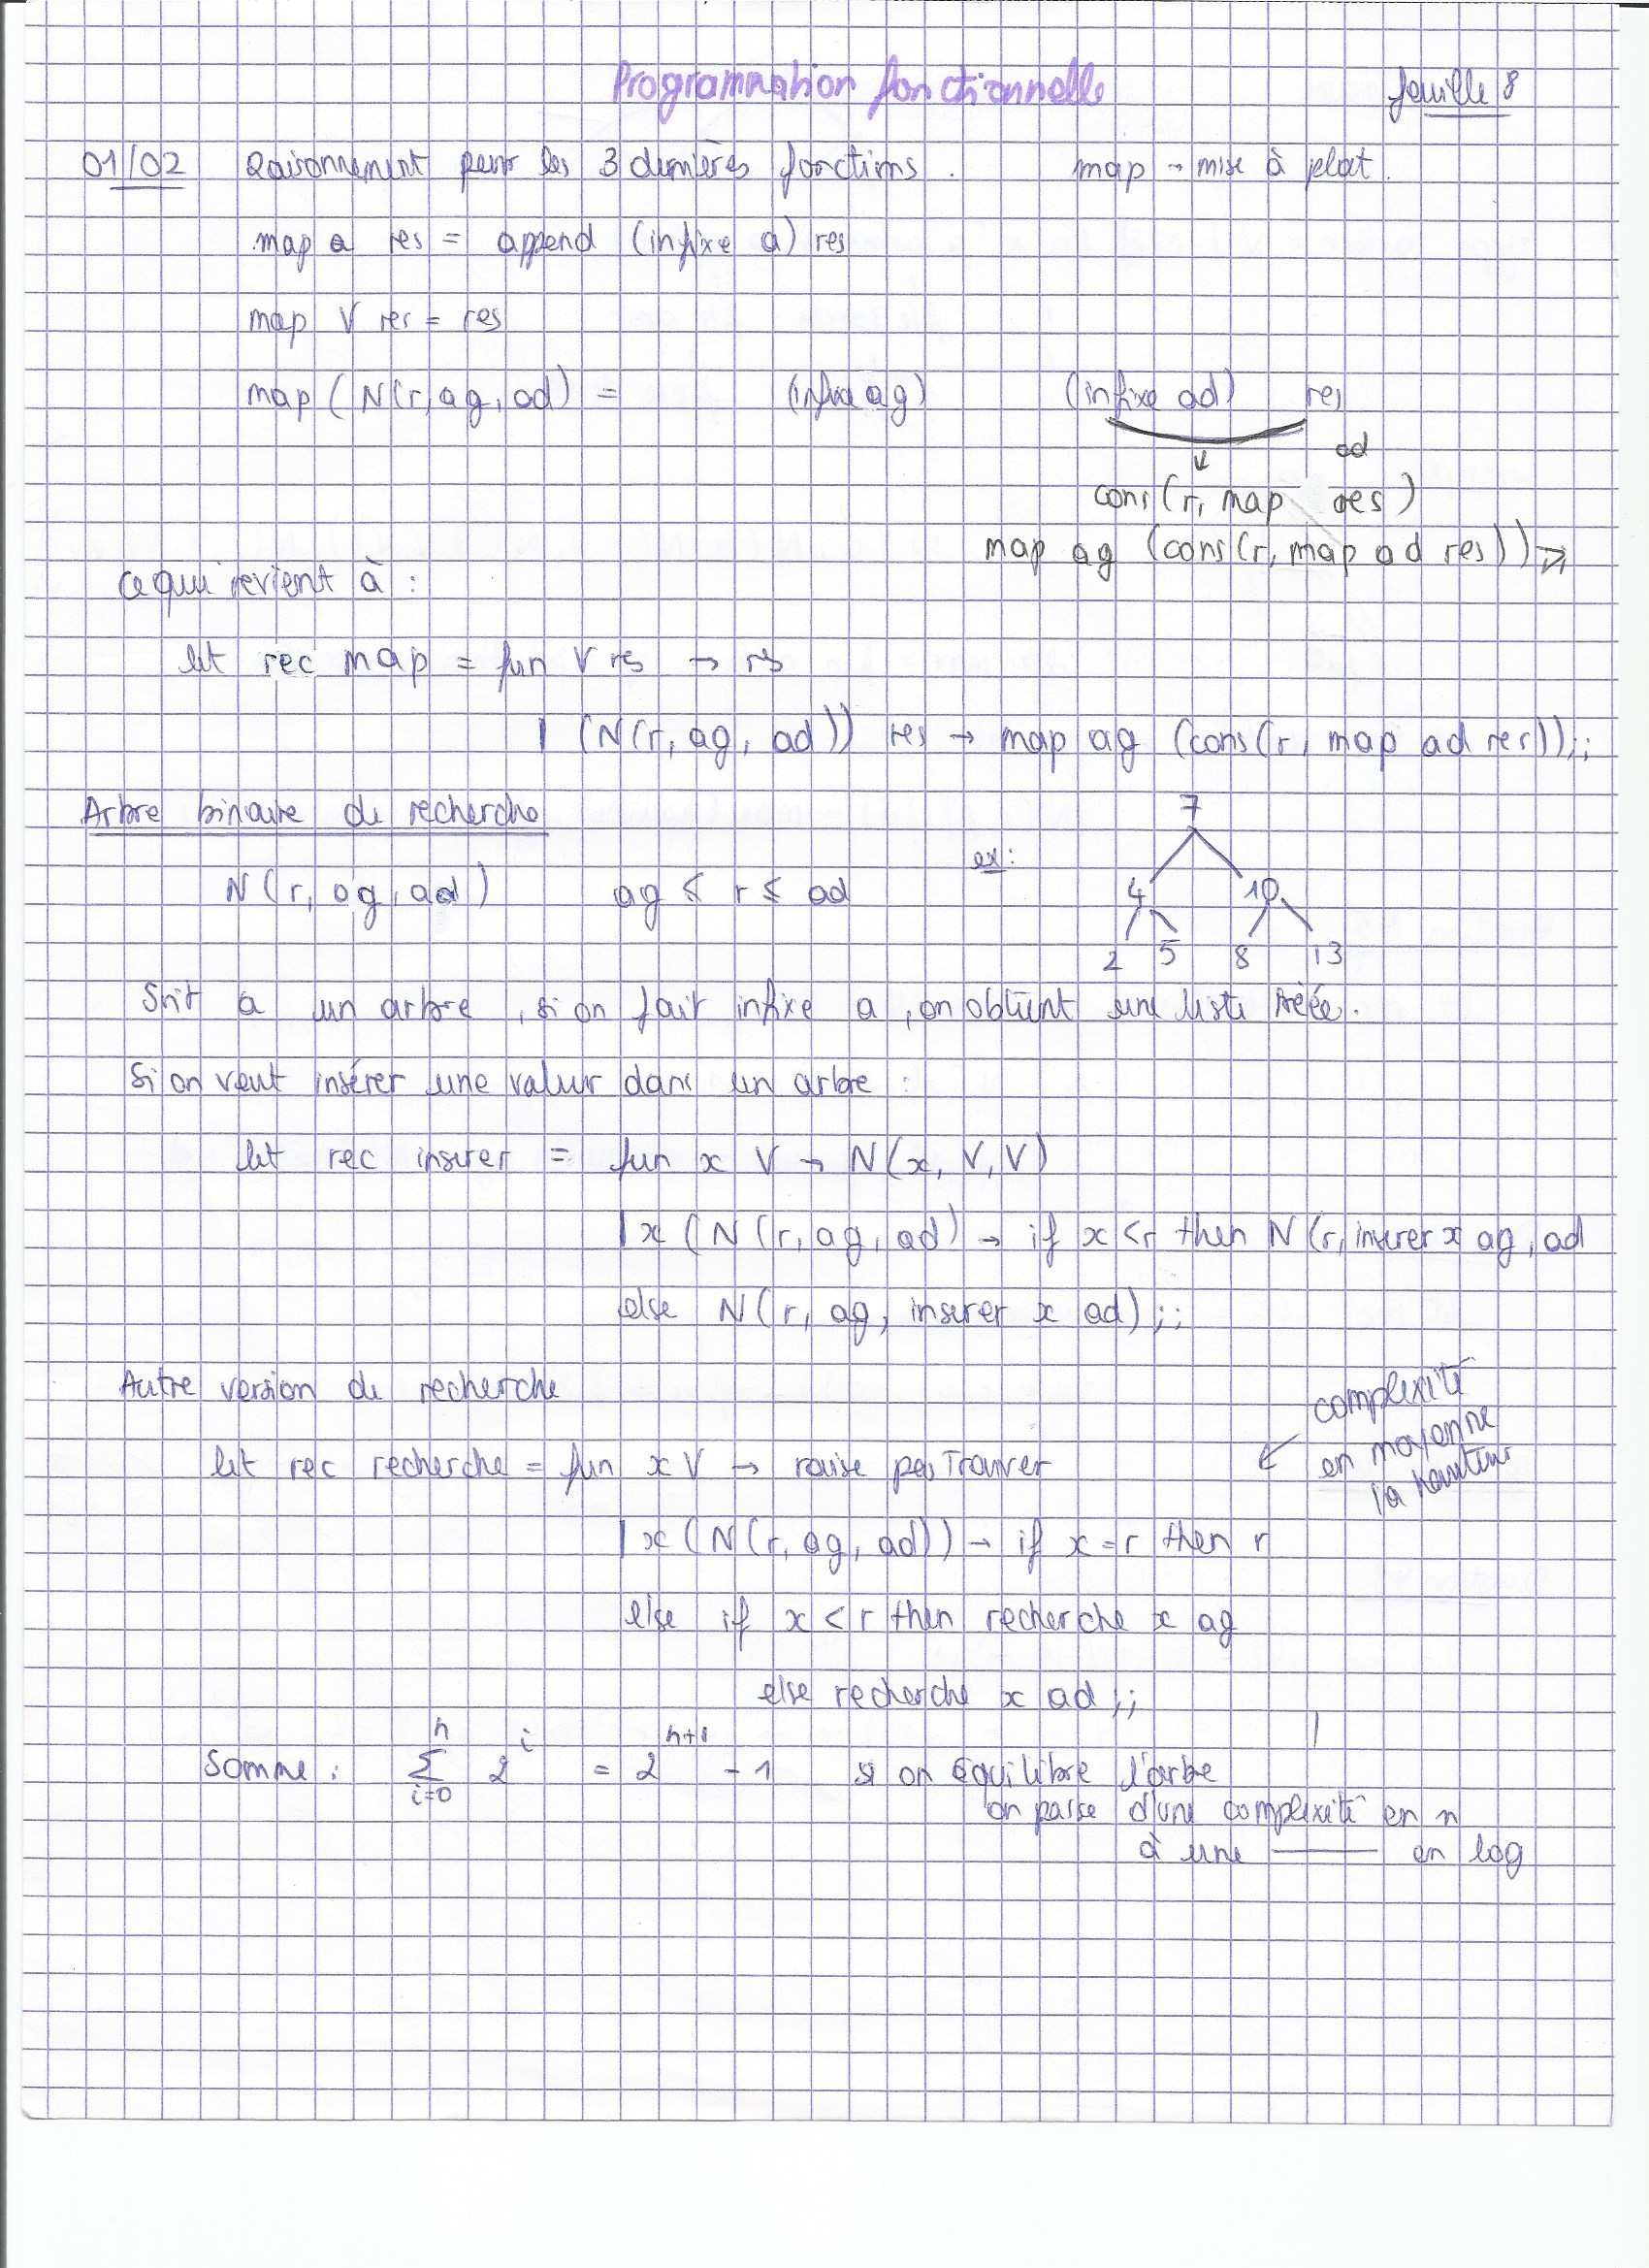 Programmation fonctionnelle
feuille 8
01/02 Raisonnement pour les 3 dernières fonctions. map → mise à plat.
map a res = append (infixe a) res
map V res = res
map (N(r, ag, ad) = (infixe ag) (infixe ad) res
ad
cons(r, map res)
map ag (cons(r, map ad res))
ce qui revient à :
let rec map = fun V res → res
| (N(r, ag, ad)) res → map ag (cons(r, map ad res));;
Arbre binaire de recherche
7
ex:
N(r, ag, ad) ag ≤ r ≤ ad
4 10
2 5 8 13
Soit a un arbre, si on fait infixe a, on obtient une liste triée.
Si on veut insérer une valeur dans un arbre :
let rec inserer = fun x V → N(x, V, V)
| x (N(r, ag, ad) → if x < r then N(r, inserer x ag, ad
else N(r, ag, inserer x ad);;
Autre version de recherche
complexité
en moyenne
la hauteur
let rec recherche = fun x V → raise pasTrouver
| x (N(r, ag, ad)) → if x = r then r
else if x < r then recherche x ag
else recherche x ad ;;
Somme : n Σ i=0 2^i = 2^n+1 - 1 si on équilibre l'arbre
on passe d'une complexité en n
à une ——— en log